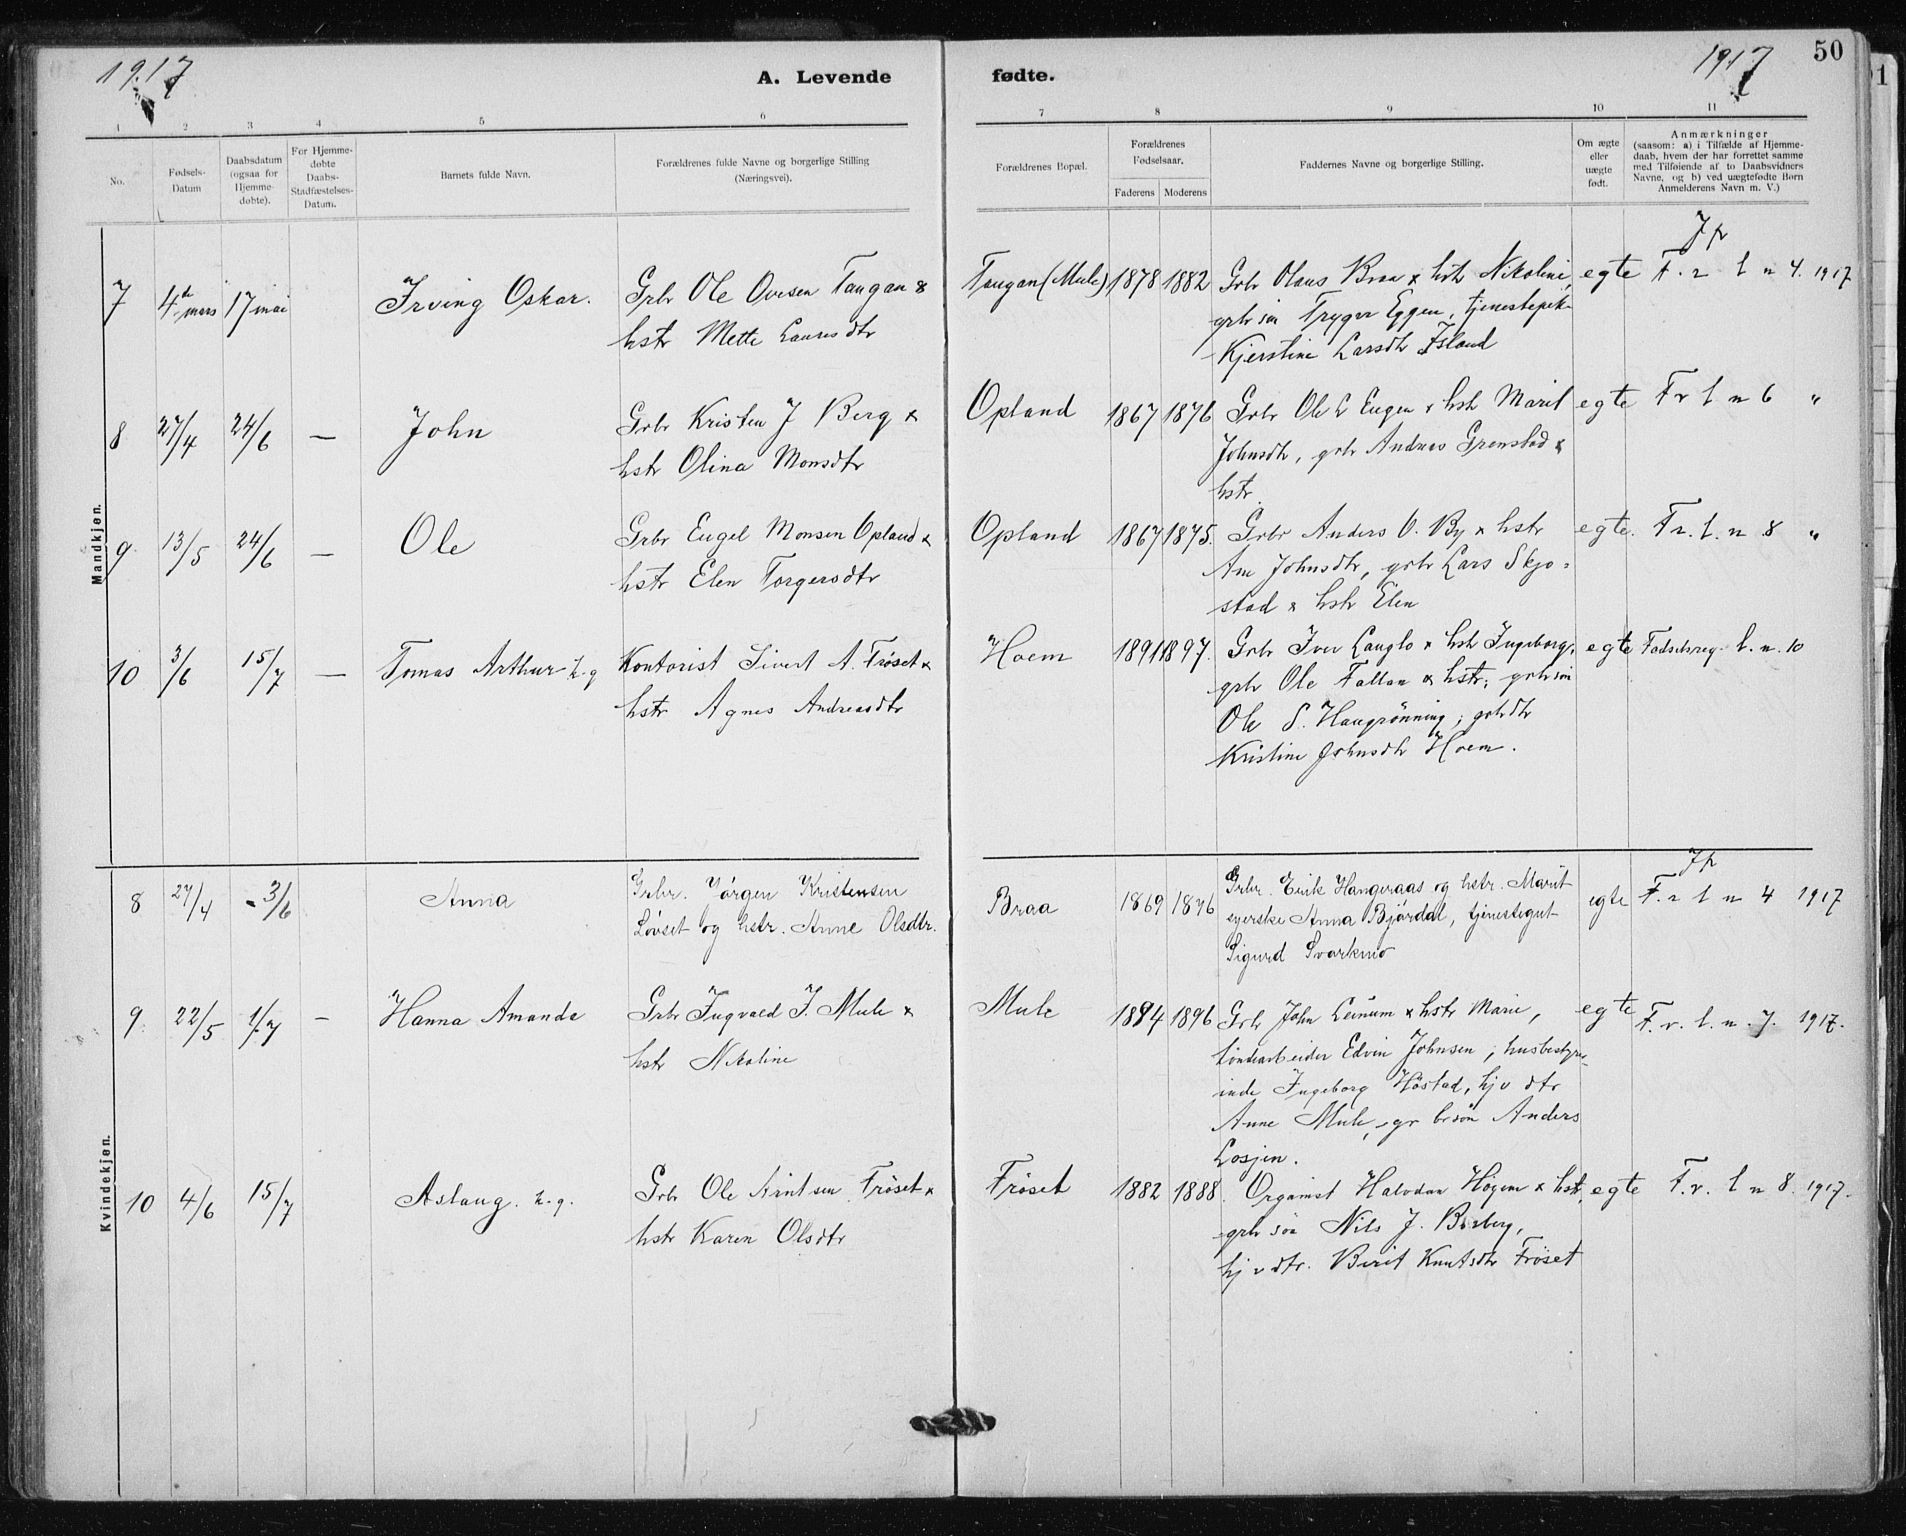 1917
A. Levende
fødte.
1917
50
1
2
3
4
5
6
7
8
9
10
11
No.
Fødsels-
Datum
Daabsdatum
(ogsaa for
Hjemme-
døbte).
For Hjemme-
døbte
Daabs-
Stadfæstelses-
Datum.
Barnets fulde Navn.
Forældrenes fulde Navne og borgerlige Stilling
(Næringsvei).
Forældrenes Bopæl.
Forældrenes
Fødselsaar.
Faderens
Moderens
Faddernes Navne og borgerlige Stilling.
Om ægte
eller
uægte
født.
Anmærkninger
(saasom: a) i Tilfælde af Hjemme-
daab, hvem der har forrettet samme
med Tilføiende af to Daabsvidners
Navne, og b) ved uægtefødte Børn
Anmelderens Navn m. V.)
Mandkjøn.
7 4de mars 17 mai Irving Oskar.
Grbr Ole Ovesen Tangan &
hstr Mette Laursdtr
Tangan (Mule) 1878 1882
Grbr Olaus Braa & hstr Nikoline,
grbr søn Trygve Eggen, tjenestepik
Kjerstine Larsdtr Island
egte
Jp
F. r l n 4. 1917
8 27/4 24/6 — John
Grbr Kristen J Berg &
hstr Olina Monsdtr
Opland 1867 1876
Grbr Ole L Engen & hstr Marit
Johnsdtr, grbr Andreas Grenstad &
hstr
egte
F r l n 6 "
9 13/5 24/6 — Ole
Grbr Engel Monsen Opland &
hstr Elen Torgersdtr
Opland 1867 1875.
Grbr Anders O. By & hstr
Ane Johnsdtr, grbr Lars Skjø-
stad & hstr Elen
egte.
F r. l. n 8 "
10 3/6 15/7 — Tomas Arthur t.g
Kontorist Sivert A. Frøset &
hstr Agnes Andreasdtr
Hoem 1891 1897.
Grbr Iver Langlo & hstr Ingeborg,
grbr Ole Fallan & hstr; grbr søn
Ole S. Haugrønning, grbrdtr
Kristine Johnsdtr Hoem.
egte
Fødselsreg. l. n. 10
Kvindekjøn.
8 27/4 3/6 Anna
Grbr. Jørgen Kristensen
Løvset og hstr. Anne Olsdtr.
Braa 1869 1876
Grbr. Erik Hangeraas og hstr. Marit
syerske Anna Bjørdal, tjenestegut
Sigurd Svorkmo
egte
Jp
F. r l n 4 1917
9. 22/5 1/7 — Hanna Amanda
Grbr Ingvald J. Mule &
hstr Nikoline
Mule 1884 1896
Grbr John Leinum & hstr Marie,
tøndearbeider Edvin Johnsen, husbestyr-
inde Ingeborg Høstad, hjv dtr
Anne Mule, gr br søn Anders
Losjen.
egte
F. r. l. n. 7. 1917.
10 4/6 15/7 Aslaug. t.g.
Grbr Ole Arntsen Frøset &
hstr Karen Olsdtr
Frøset 1882 1888.
Organist Halvdan Högem & hstr,
grbr søn Nils J. Berberg,
hjv dtr. Berit Knutsdtr Frøset
egte
F. r. l n 8. 1917.